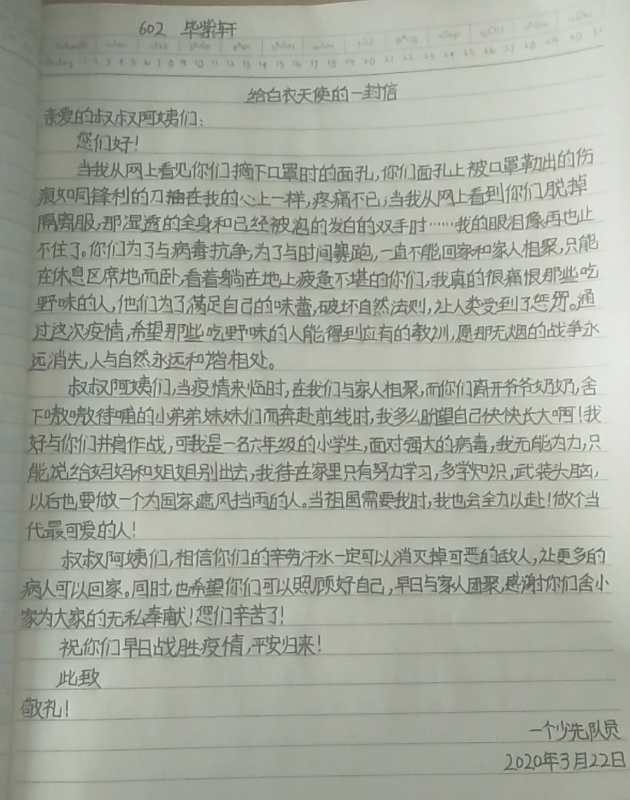 602 毕紫轩
给白衣天使的一封信
亲爱的叔叔阿姨们:
您们好!
当我从网上看见你们摘下口罩时的面孔,你们面孔上被口罩勒出的伤
痕如同锋利的刀插在我的心上一样,疼痛不已,当我从网上看到你们脱掉
隔离服,那湿透的全身和已经被泡的发白的双手时……我的眼泪像再也止
不住了。你们为了与病毒抗争,为了与时间赛跑,一直不能回家和家人相聚,只能
在休息区席地而卧,看着躺在地上疲惫不堪的你们,我真的很痛恨那些吃
野味的人,他们为了满足自己的味蕾,破坏自然法则,让人类受到了惩罚。通
过这次疫情,希望那些吃野味的人能得到应有的教训,愿那无烟的战争永
远消失,人与自然永远和谐相处。
叔叔阿姨们,当疫情来临时,在我们与家人相聚,而你们离开爷爷奶奶,舍
下嗷嗷待哺的小弟弟妹妹们而奔赴前线时,我多么盼望自己快快长大啊!我
好与你们并肩作战,可我是一名六年级的小学生,面对强大的病毒,我无能为力,只
能说给妈妈和姐姐别出去,我待在家里只有努力学习,多学知识,武装头脑,
以后也要做一个为国家遮风挡雨的人。当祖国需要我时,我也会全力以赴!做个当
代最可爱的人!
叔叔阿姨们,相信你们的辛劳汗水一定可以消灭掉可恶的敌人,让更多的
病人可以回家。同时,也希望你们可以照顾好自己,早日与家人团聚,感谢你们舍小
家为大家的无私奉献!您们辛苦了!
祝你们早日战胜疫情,平安归来!
此致
敬礼!
一个少先队员
2020年3月22日